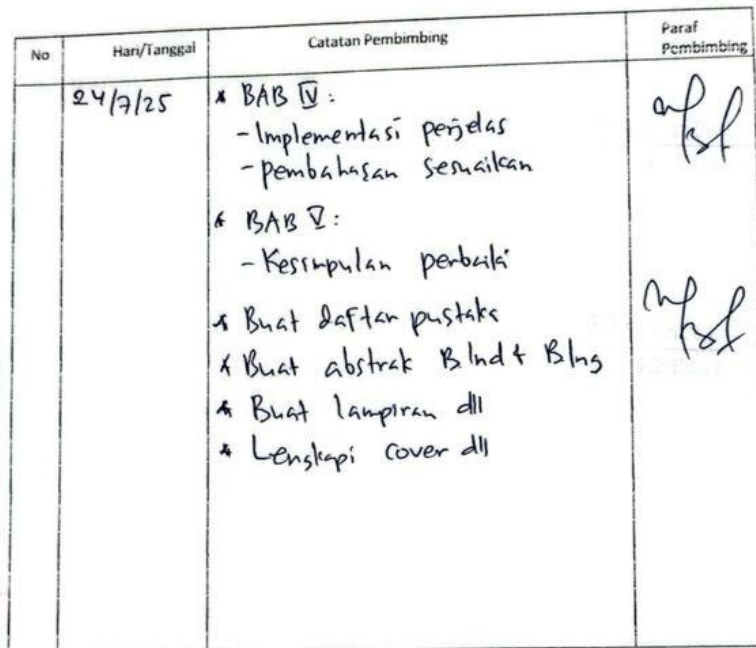 No
Hari/Tanggal
Catatan Pembimbing
Paraf
Pembimbing
24/7/25
* BAB IV:
- Implementasi perjelas
- pembahasan sesuaikan
* BAB V:
- Kesimpulan perbaiki
* Buat daftar pustaka
* Buat abstrak B Ind & B Ing
* Buat lampiran dll
* Lengkapi cover dll